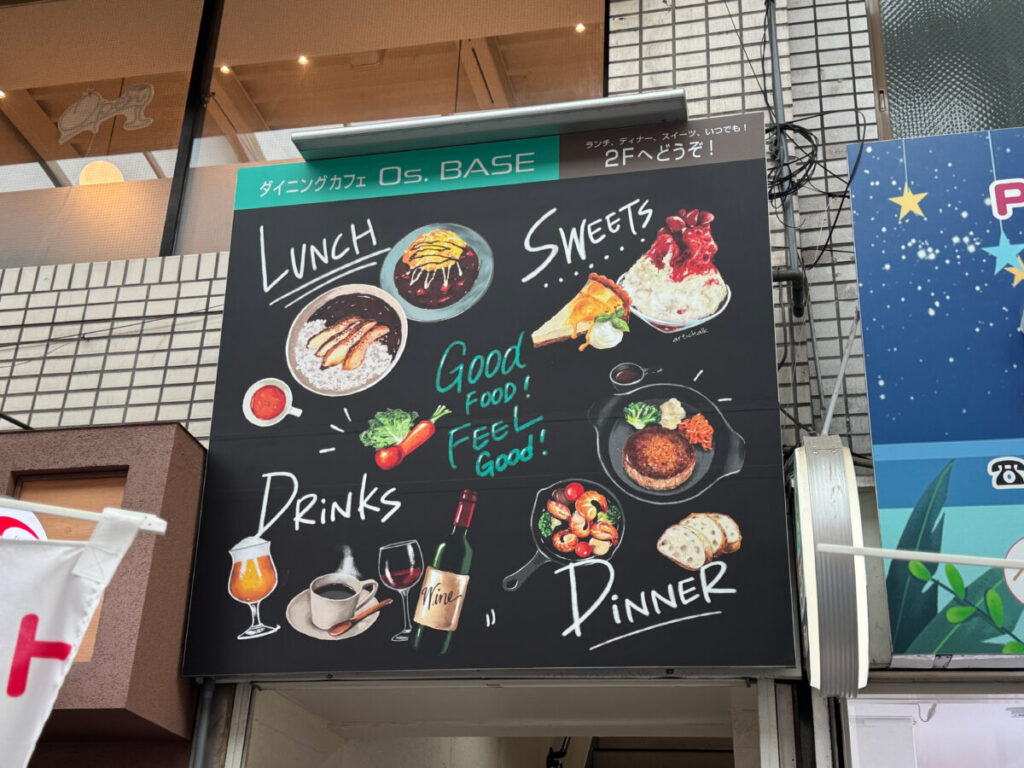 ダイニングカフェ Os. BASE
ランチ、ディナー、スイーツ、いつでも！
2Fへどうぞ！
LUNCH
SWEETS
artichalk
GOOD
FOOD!
FEEL
Good!
DRINKS
Wine
DINNER
P
ト